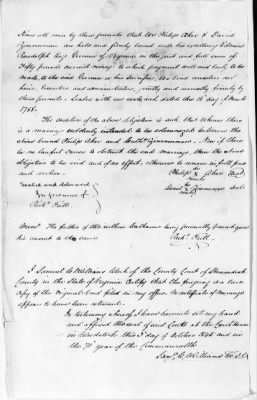 Know all men by these presents that We Philip Aker & David
Zimmerman are held and firmly bound unto his excellency Edmund
Randolph Esqr. Governor of Virginia in the just and full sum of
Fifty pounds current money to which payment well and truly to be
made to the said Governor or his Successors, We bind ourselves our
heirs, Executors and administrators, jointly and severally firmly by
these presents. Sealed with our seals and dated this day of March
1788.
The condition of the above obligation is such that Whereas there
is a marriage suddenly intended to be solemnized between the
above bound Philip Aker and Zimmerman. Now if there
be no lawful Cause to obstruct the said marriage, then the above
obligation to be void and of no effect, otherwise to remain in full force
and virtue.
Philip Aker Seal
mark
Sealed and delivered
David Zimmerman Seal
in presence of
mark
The father of the within being personally present gives
his consent to the same
I Samuel C. Williams Clerk of the County Court of Shenandoah
County in the State of Virginia Certify that the foregoing is a true
Copy of the original bond filed in my office. No certificate of marriage
appears to have been returned.
In testimony whereof I have hereunto set my hand
and affixed the seal of said Court at the Court House
in Woodstock this day of October and in
the year of the Commonwealth.
Saml. C. Williams